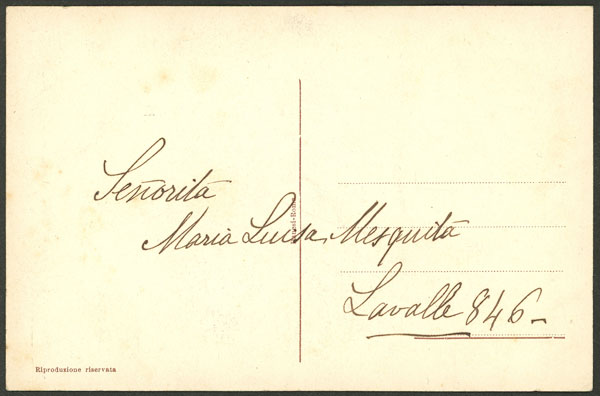 Señorita
Maria Luisa Mesquita
Lavalle 846-
Riproduzione riservata